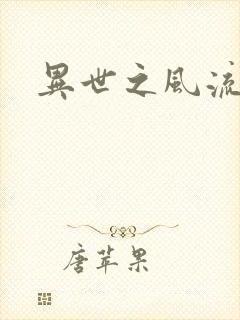 異世之風流
唐苹果